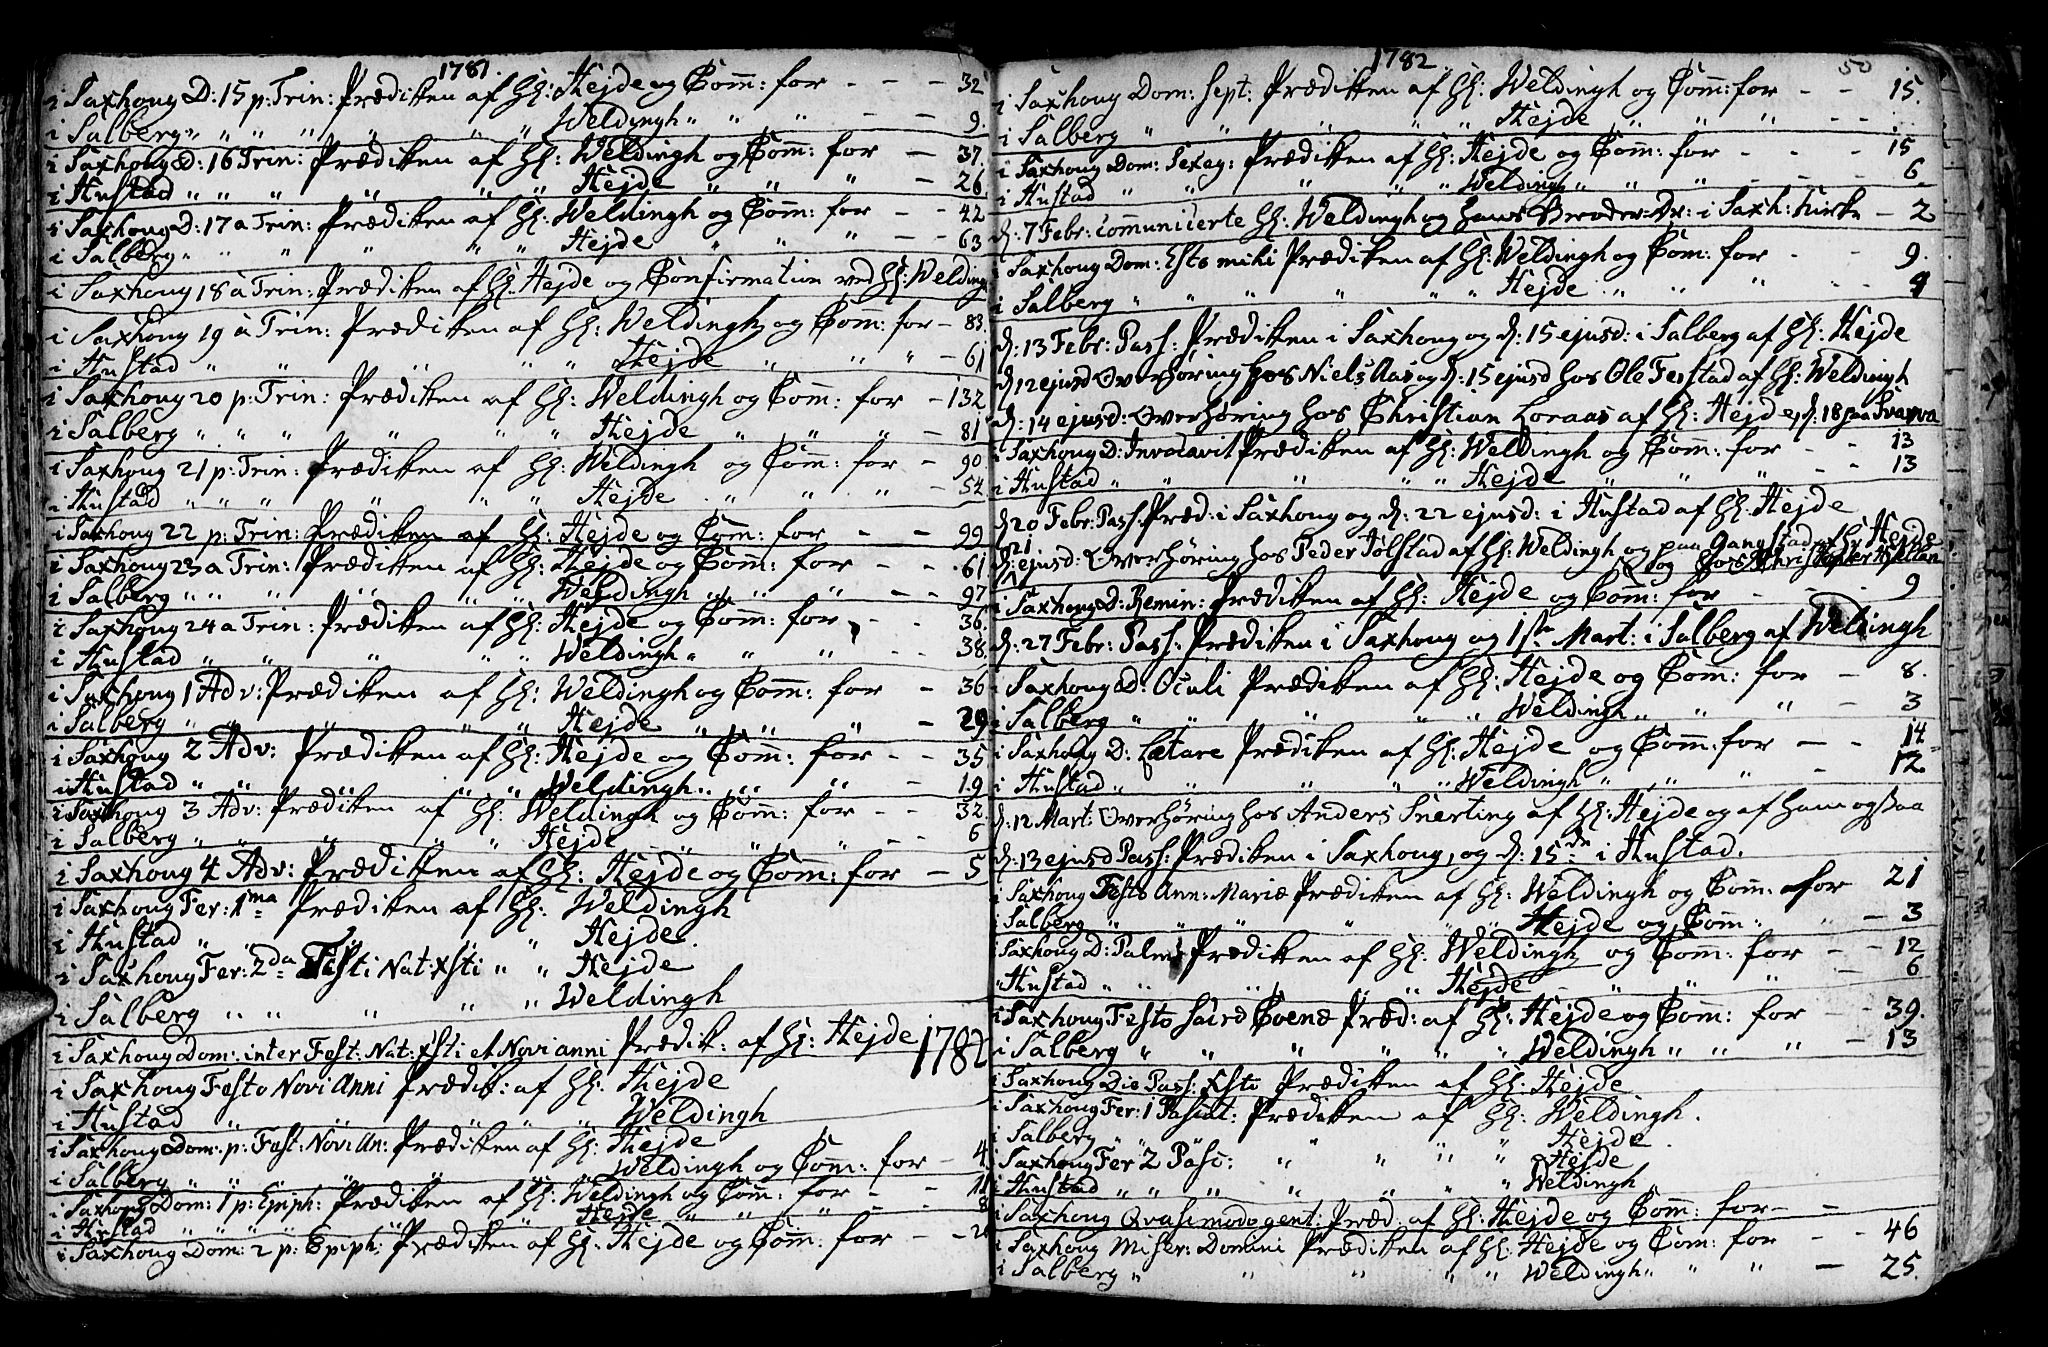 1781.
i Saxhoug D: 15 p: Trin: Prædiken af Hl: Hejde og Com̄: for - - - 32
i Salberg " " " " " " " Weldingh " " " - - 9
i Saxhoug D: 16 Trin: Prædiken af Hl: Weldingh og Com̄: for - 37.
i Hustad " " " " " " Hejde " " " - 26
i Saxhoug D: 17 a Trin: Prædiken af Hl: Weldingh og Com̄: for - - 42
i Salberg " " " " " " Hejde " " " - - 63
i Saxhoug 18 a Trin: Prædiken af Hl: Hejde og Confirmation ved Hl: Welding
i Saxhoug 19 a Trin: Prædiken af Hl: Weldingh og Com̄: for - 83.
i Hustad " " " " " Hejde " " " - 61
i Saxhoug 20 p: Trin: Prædiken af Hl: Weldingh og Com̄: for - 132
i Salberg " " " " " " Hejde " " " - 81
i Saxhoug 21 p: Trin: Prædiken af Hl: Weldingh og Com̄: for - 90
i Hustad " " " " " " Hejde " " " - 54
i Saxhoug 22 p: Trin: Prædiken af Hl: Hejde og Com̄: for - - 99
i Saxhoug 23 a Trin: Prædiken af Hl: Hejde og Com̄: for - - 61
i Salberg " " " " " " " Weldingh " " " - - 97
i Saxhoug 24 a Trin: Prædiken af Hl: Hejde og Com̄: for - - 36
i Hustad " " " " " Weldingh " " " - - 38
i Saxhoug 1 Adv: Prædiken af Hl: Weldingh og Com̄: for - 36
i Salberg " " " " " Hejde " " " - 29
i Saxhoug 2 Adv: Prædiken af Hl: Hejde og Com̄: for - - 35
i Hustad " " " " " Weldingh " " " - - 19
i Saxhoug 3 Adv: Prædiken af Hl: Weldingh og Com̄: for - - 32.
i Salberg " " " " " Hejde " " " - - 6
i Saxhoug 4 Adv: Prædiken af Hl: Hejde og Com̄: for - 5
i Saxhoug Fer: 1ma Prædiken af Hl: Weldingh
i Hustad " " " " Hejde.
i Saxhoug Fer: 2da Festi Nat: Xsti " " Hejde
i Salberg " " " " " Weldingh
i Saxhoug Dom: inter Fest: Nat: Xsti et Novi anni Prædik: af Hl: Hejde 1782
i Saxhoug Festo Novi Anni Prædik: af Hl: Hejde
i Hustad " " " " Weldingh
i Saxhoug Dom: p: Fest: Novi An: Prædiken af Hl: Hejde
i Salberg " " " " " Weldingh og Com̄: for - 4
i Saxhoug Dom: 1 p: Epiph: Prædiken af Hl: Weldingh og Com̄: for - - 11
i Hustad " " " " " " Hejde " " " - 8
i Saxhoug Dom: 2 p: Epiph: Prædiken af Hl: Hejde og Com̄: for - - 2
1782.
50
i Saxhoug Dom: Sept: Prædiken af Hl: Weldingh og Com̄: for - - 15.
i Salberg " " " " " Hejde " " " - -
i Saxhoug Dom: Sexag: Prædiken af Hl: Hejde og Com̄: for - - - 15
i Hustad " " " " " Weldingh " " " - - - 6
d: 7 Febr: communicerte Hl: Weldingh og hans Broder i Saxh: Kirke - 2
i Saxhoug Dom: Esto mihi Prædiken af Hl: Weldingh og Com: for - - 9.
i Salberg " " " " " " Hejde " " " - 9
d: 13 Febr: Pass: Prædiken i Saxhoug og d: 15 ejusd: i Salberg af Hl: Hejde
d: 12 ejusd Overhøring hos Niels Aas og d: 15 ejusd hos Ole Ferstad af Hl: Weldingh
d: 14 ejusd: Overhøring hos Christian Loraas af Hl: Hejde, d: 18 paa Svarva
i Saxhoug D: Invocavit Prædiken af Hl: Weldingh og Com̄: for - - 13
i Hustad " " " " " Hejde " " " - - 13
d: 20 Febr: Pass: Præd: i Saxhoug og d: 22 ejusd: i Hustad af Hl: Hejde
d: 21 ejusd: Overhøring hos Peder Jølstad af Hl: Weldingh og paa Gangstad af Hr Hejde
og hos Christopher
i Saxhoug D: Remin: Prædiken af Hl: Hejde og Com: for - - - 9
d: 27 Febr: Pass: Prædiken i Saxhoug og 1ste Mart: i Salberg af Weldingh
i Saxhoug D: Oculi Prædiken af Hl: Hejde og Com: for - 8.
i Salberg " " " " " Weldingh " " " - 3
i Saxhoug D: Lætare Prædiken af Hl: Hejde og Com̄: for - - 14
i Hustad " " " " " Weldingh " " " - 12
d: 12 Mart: Overhøring hos Anders Snerting af Hl: Hejde og af ham ogsaa
d: 13 ejusd Pass: Prædiken i Saxhoug, og d: 15de i Hustad.
i Saxhoug Festo Ann: Mariæ Prædiken af Hl: Weldingh og Com̄: for 21
i Salberg " " " " " Hejde og Com̄: " - 3
i Saxhoug D: Palm: Prædiken af Hl: Weldingh og Com̄: for - 12
i Hustad " " " " " Hejde " " " - 6
i Saxhoug Festo Sacræ Coenæ Præd: af Hl: Hejde og Com̄: for - 39.
i Salberg " " " " " Weldingh " " " - 13
i Saxhoug Die Pass: Xsti Prædiken af Hl: Hejde
i Saxhoug Fer: 1 Pascat: Prædiken af Hl: Weldingh.
i Salberg " " " " " Hejde.
i Saxhoug Fer 2 Pasc: " " " " Hejde
i Hustad " " " " " " Weldingh
i Saxhoug Qvasimodogent: Præd: af Hl: Hejde og Com̄: for - -
i Saxhoug Miser: Domini Prædiken af Hl: Hejde og Com: for - - 46
i Salberg " " " " " Weldingh " " " - 25.